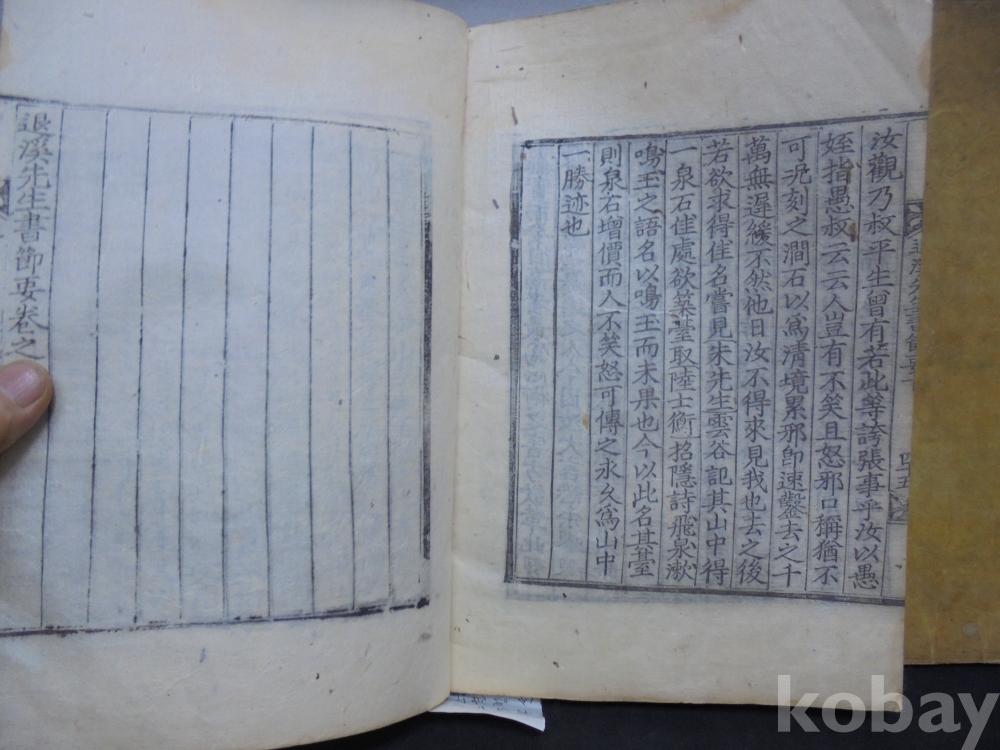 汝觀乃叔平生曾有若此等誇張事乎汝以愚
姪指愚叔云云人豈有不笑且怒邪口稱猶不
可況刻之澗石以爲清境累邪卽速鑿去之千
萬無遲緩不然他日汝不得來見我也去之後
若欲求得佳名嘗見朱先生雲谷記其山中得
一泉石佳處欲築臺取陸士衡招隱詩飛泉漱
鳴玉之語名以鳴玉而未果也今以此名其臺
則泉石增價而人不笑怒可傳之永久爲山中
一勝迹也
四五
退溪先生書節要卷之
kobay